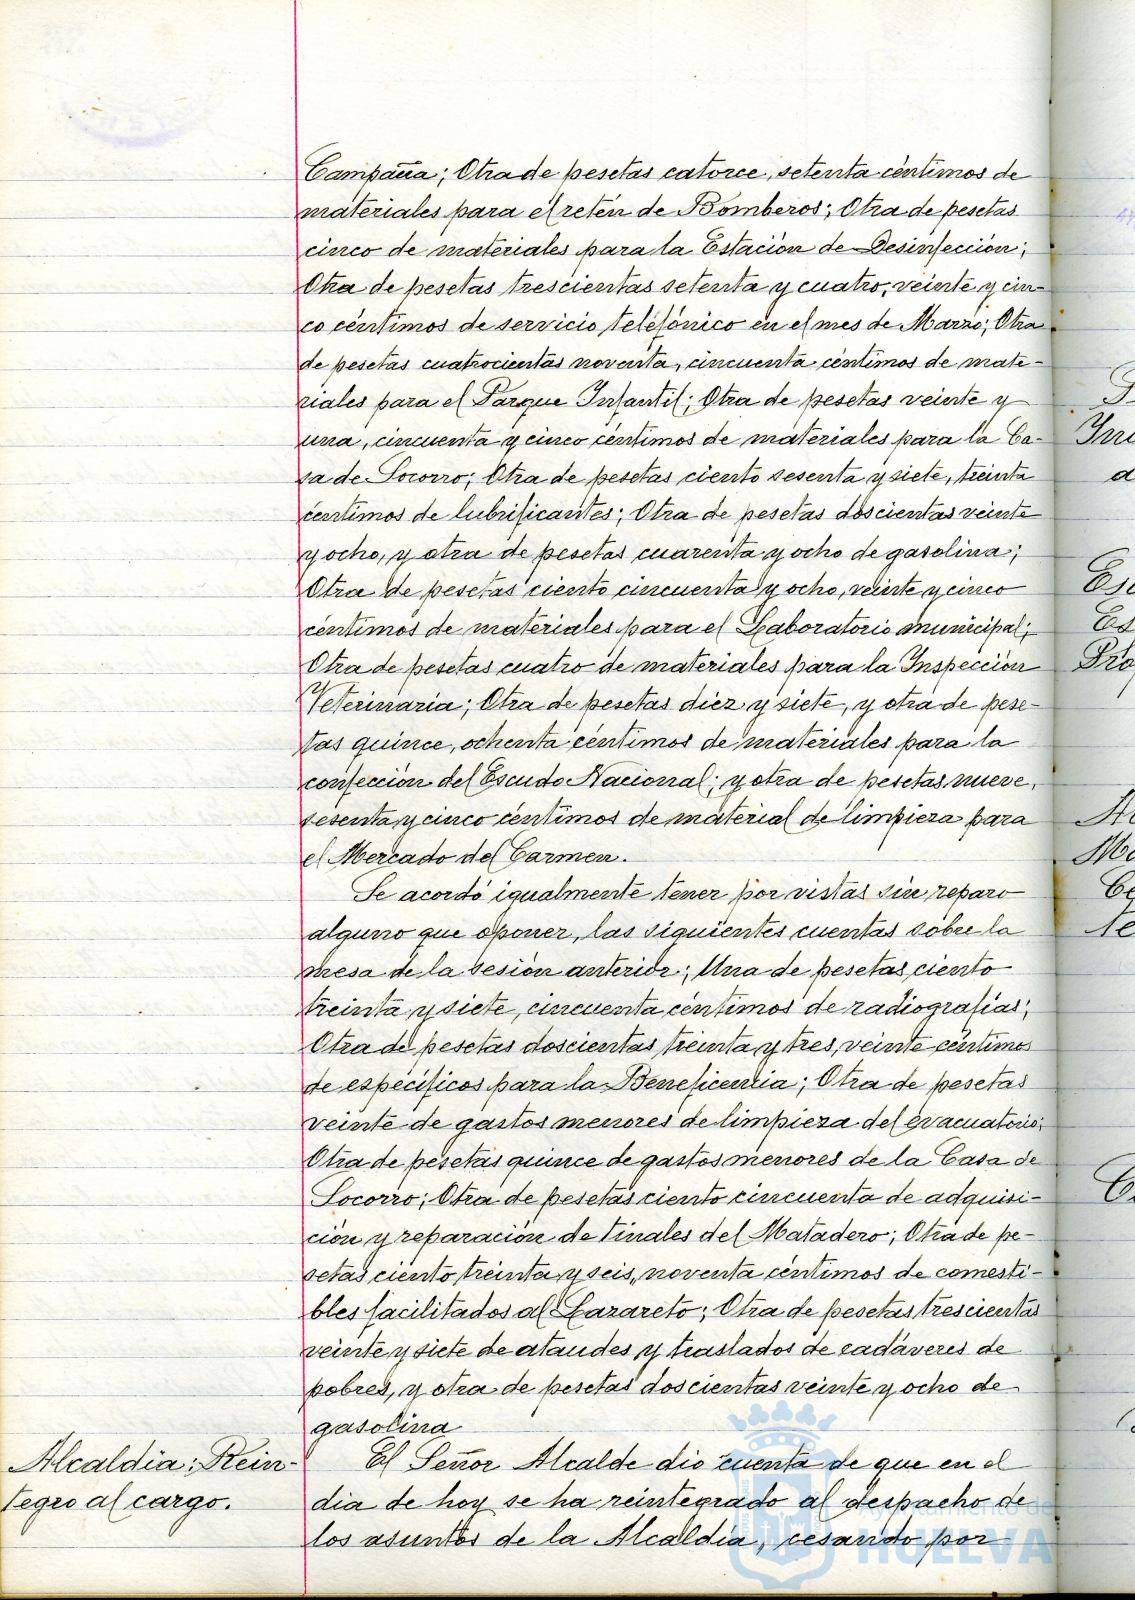 Campaña; Otra de pesetas catorce, setenta céntimos de
materiales para el retén de Bomberos; Otra de pesetas
cinco de materiales para la Estación de Desinfección;
Otra de pesetas trescientas setenta y cuatro, veinte y cin-
co céntimos de servicio telefónico en el mes de Marzo; Otra
de pesetas cuatrocientas noventa, cincuenta céntimos de mate-
riales para el Parque Infantil; Otra de pesetas veinte y
una, cincuenta y cinco céntimos de materiales para la Ca-
sa de Socorro; Otra de pesetas ciento sesenta y siete, treinta
céntimos de lubrificantes; Otra de pesetas doscientas veinte
y ocho, y otra de pesetas cuarenta y ocho de gasolina;
Otra de pesetas ciento cincuenta y ocho, veinte y cinco
céntimos de materiales para el Laboratorio municipal;
Otra de pesetas cuatro de materiales para la Inspección
Veterinaria; Otra de pesetas diez y siete, y otra de pese-
tas quince, ochenta céntimos de materiales para la
confección del Escudo Nacional; y otra de pesetas nueve,
sesenta y cinco céntimos de material de limpieza para
el Mercado del Carmen.
Se acordó igualmente tener por vistas sin reparo
alguno que oponer, las siguientes cuentas sobre la
mesa de la sesión anterior; Una de pesetas ciento
treinta y siete, cincuenta céntimos de radiografías;
Otra de pesetas doscientas treinta y tres, veinte céntimos
de específicos para la Beneficencia; Otra de pesetas
veinte de gastos menores de limpieza del evacuatorio;
Otra de pesetas quince de gastos menores de la Casa de
Socorro; Otra de pesetas ciento cincuenta de adquisi-
ción y reparación de tinales del Matadero; Otra de pe-
setas ciento treinta y seis, noventa céntimos de comesti-
bles facilitados al Lazareto; Otra de pesetas trescientas
veinte y siete de ataudes y traslados de cadáveres de
pobres, y otra de pesetas doscientas veinte y ocho de
gasolina
Alcaldia; Rein-
tegro al cargo.
El Señor Alcalde dio cuenta de que en el
dia de hoy se ha reintegrado al despacho de
los asuntos de la Alcaldía, cesando por
Ayuntamiento de
HUELVA